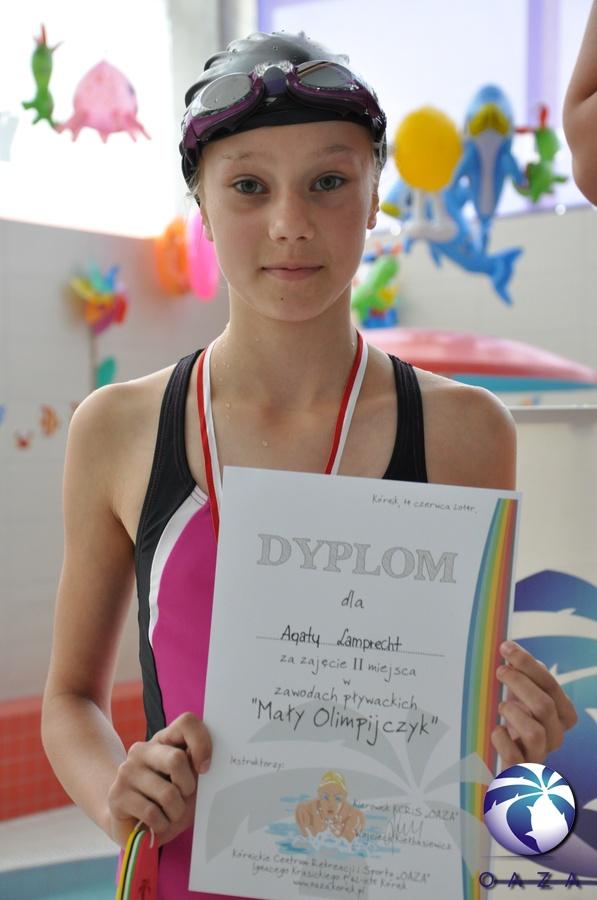 Kórnik, 14 czerwca 2014r.
DYPLOM
dla
Agaty Lamprecht
za zajęcie II miejsca
w
zawodach pływackich
"Mały Olimpijczyk"
Instruktorzy:
Kierownik KCRiS „OAZA"
Wojciech Kiełbasiewicz
Kórnickie Centrum Rekreacji i Sportu „OAZA"
Ignacego Krasickiego 1
www.oaza.kornik.pl
OAZA